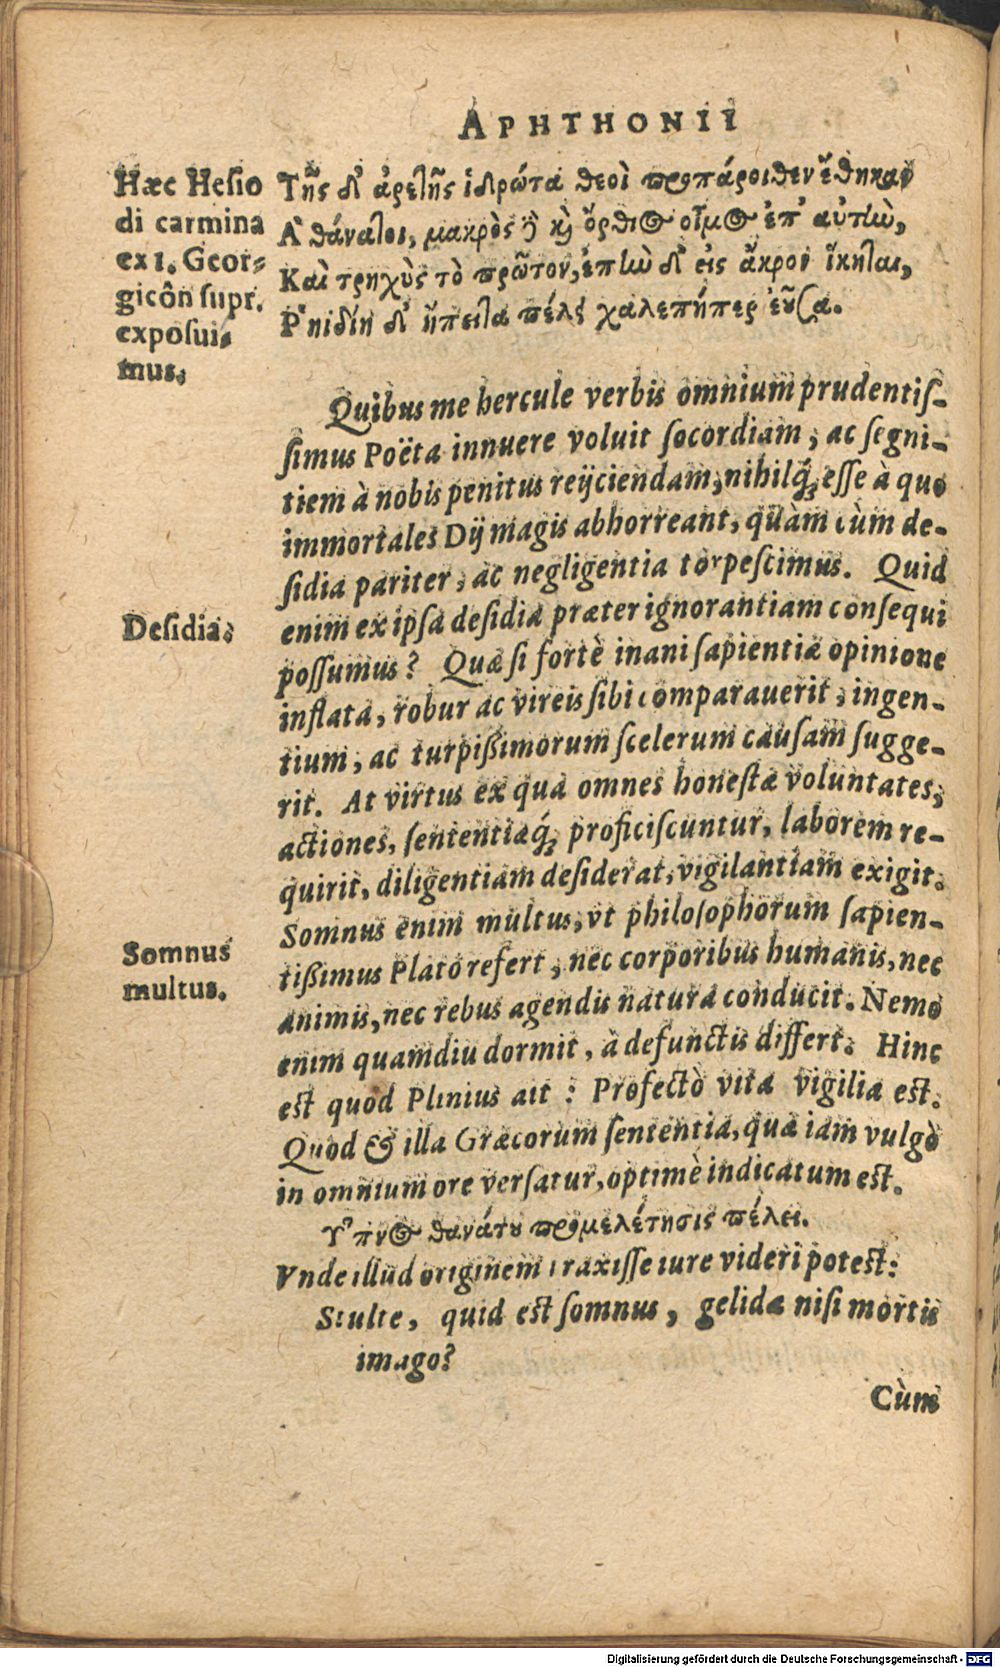 APHTHONII
Hæc Hesio
di carmina
ex 1. Geor-
gicôn supr.
exposui-
mus.
Τῆς δ' ἀρετῆς ἱδρῶτα θεοὶ προπάροιθεν ἔθηκαν
Ἀθάνατοι, μακρὸς ἢ κὶ ὄρθιος οἶμος ἐπ' αὐτὴν,
Καὶ τρηχὺς τὸ πρῶτον, ἐπὴν δ' εἰς ἄκρον ἵκηται,
Ῥηιδίη δ' ἤπειτα πέλει χαλεπήπερ ἐοῦσα.
Quibus me hercule verbis omnium prudentiſ-
ſimus Poëta innuere voluit ſocordiam, ac ſegni-
tiem à nobis penitus reijciendam, nihilq́; eſſe à quo
immortales Dij magis abhorreant, quàm cùm de-
ſidia pariter, ac negligentia torpeſcimus. Quid
enim ex ipſa deſidia præter ignorantiam conſequi
poſſumus? Quæ ſi fortè inani ſapientiæ opinione
inflata, robur ac vireis ſibi comparauerit, ingen-
tium, ac turpißimorum ſcelerum cauſam ſugge-
rit. At virtus ex qua omnes honeſtæ voluntates,
actiones, ſententiæq́; proficiſcuntur, laborem re-
quirit, diligentiam deſiderat, vigilantiam exigit.
Somnus enim multus, vt philoſophorum ſapien-
tißimus Plato refert, nec corporibus humanis, nec
animis, nec rebus agendis natura conducit. Nemo
enim quamdiu dormit, à defunctis differt. Hinc
est quod Plinius ait : Profectò vita vigilia est.
Quod & illa Græcorum ſententia, quæ iam vulgò
in omnium ore verſatur, optimè indicatum est.
Ὕπνος θανάτου προμελέτησις πέλει.
Vnde illud originem traxiſſe iure videri potest:
Stulte, quid est ſomnus, gelidæ niſi mortis
imago?
Desidia.
Somnus
multus.
Cùm
Digitalisierung gefördert durch die Deutsche Forschungsgemeinschaft - DFG